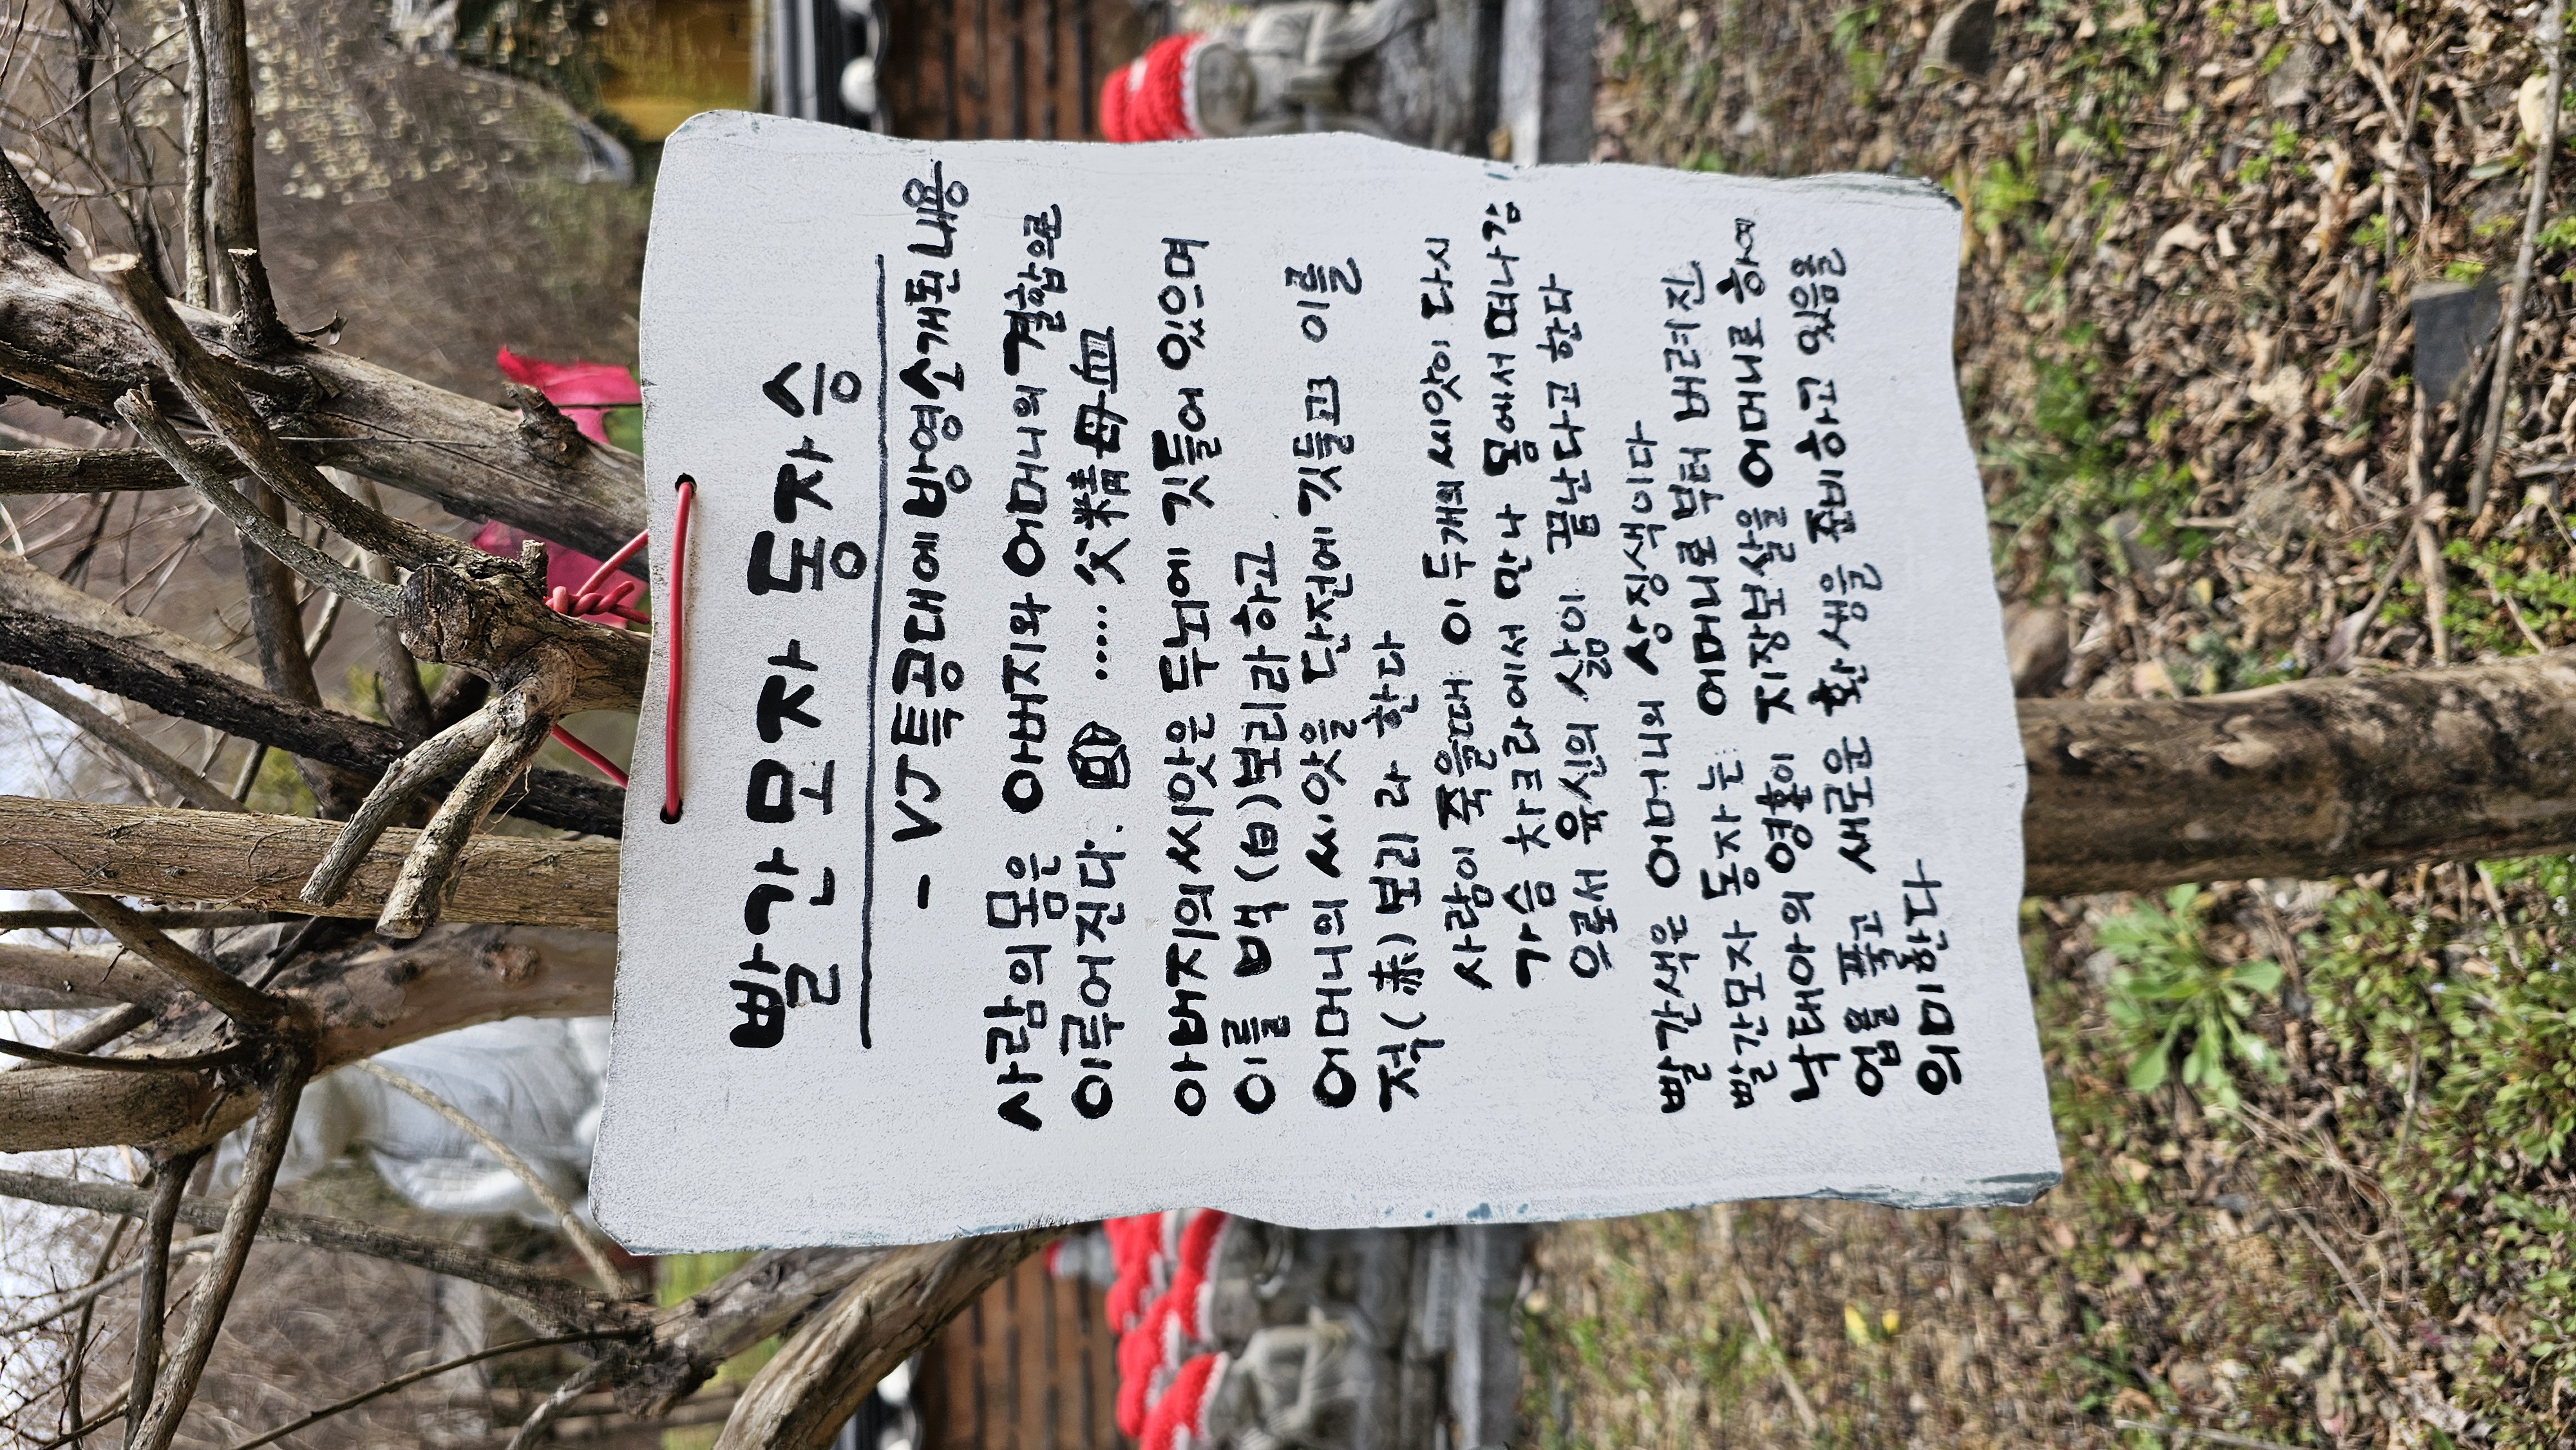 빨간 모자 동자승
- VJ특공대에 방영소개된 내용
사람의 몸은 아버지와 어머니의 결합으로
이루어진다. ..... 父精母血
아버지의 씨앗은 두뇌에 깃들어 있으며
이를 백(白)보리라 하고
어머니의 씨앗을 단전에 깃들고 이를
적(赤)보리라 한다
사람이 죽을때 이 두개의 씨앗이 다시
가슴 차크라에서 만나 몸에서 떠나감
으로서 육신의 삶이 끝난다고 한다
빨간색은 어머니의 상징색이다
빨간모자 동자는 어머니로 부터 버려진
낙태아의 영혼이 지장보살을 어머니로 하여
업을 풀고 새로운 환생을 준비하고 있음을
의미한다